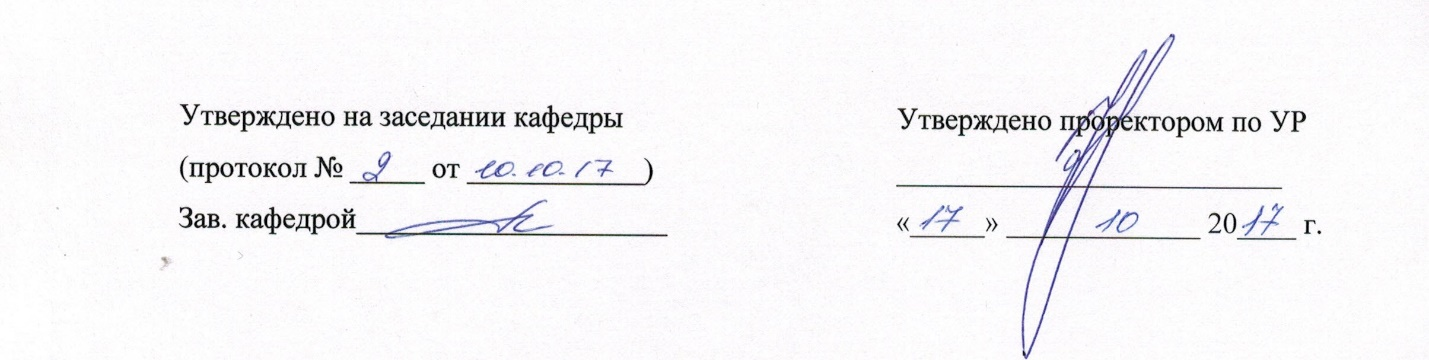 Утверждено на заседании кафедры
(протокол № 2 от 10.10.17)
Зав. кафедрой
Утверждено проректором по УР
«17» 10 2017 г.